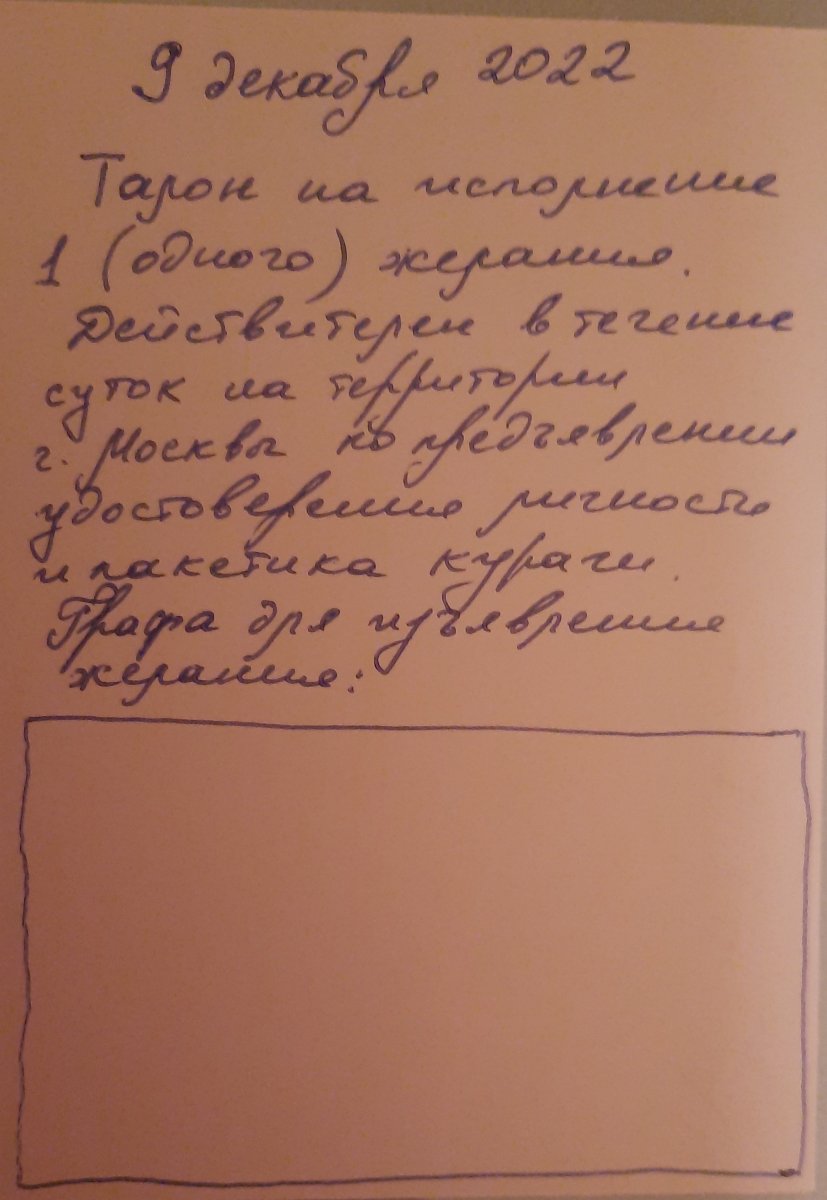 9 декабря 2022
Талон на исполнение
1 (одного) желания.
Действителен в течение
суток на территории
г. Москвы по предъявлении
удостоверения личности
и пакетика кураги.
Графа для изъявления
желания: